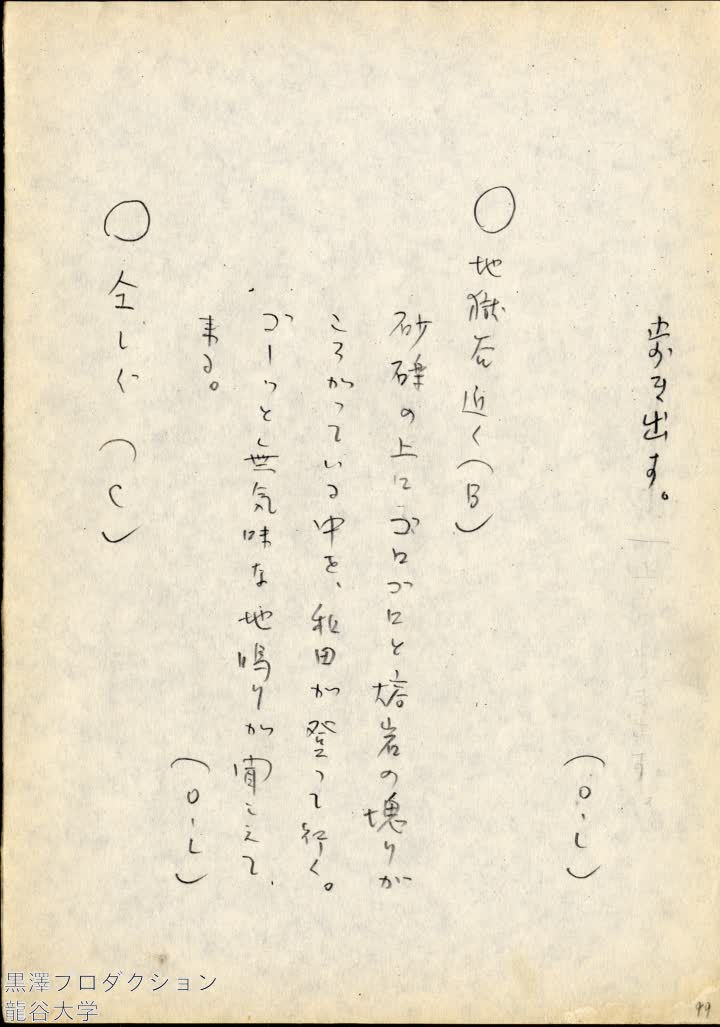 歩き出す。
(O・L)
○ 地獄谷近く(B)
砂礫の上にゴロゴロと熔岩の塊りが
ころがっている中を、和田が登って行く。
ゴーッと無気味な地鳴りが聞こえて
来る。
(O・L)
○ 仝じく(C)
99
黒澤プロダクション
龍谷大学